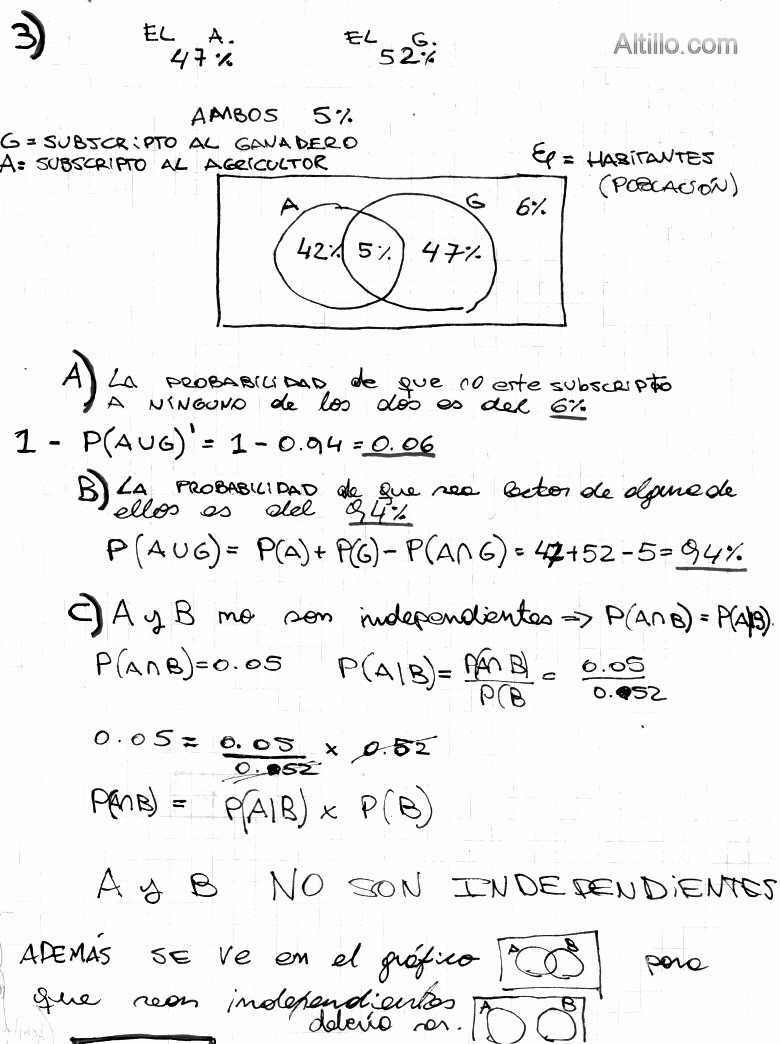 3) EL A. EL G. Altillo.com
47% 52%
AMBOS 5%
G = SUBSCRIPTO AL GANADERO
A = SUBSCRIPTO AL AGRICULTOR
Ep = HABITANTES
(POBLACIÓN)
A G 6%
42% 5% 47%
A) LA PROBABILIDAD de que no este subscripto
A NINGUNO de los dos es del 6%
1 - P(A∪G)' = 1 - 0.94 = 0.06
B) LA PROBABILIDAD de que sea lector de alguno de
ellos es del 94%
P(A∪G) = P(A) + P(G) - P(A∩G) = 47+52-5 = 94%
C) A y B no son independientes => P(A∩B) = P(A|B).
P(A∩B) = 0.05 P(A|B) = P(A∩B) / P(B = 0.05 / 0.52
0.05 = 0.05 / 0.52 x 0.52
P(A∩B) = P(A|B) x P(B)
A y B NO SON INDEPENDIENTES
ADEMÁS SE VE en el gráfico A B para
que sean independientes
deberia ser. A B